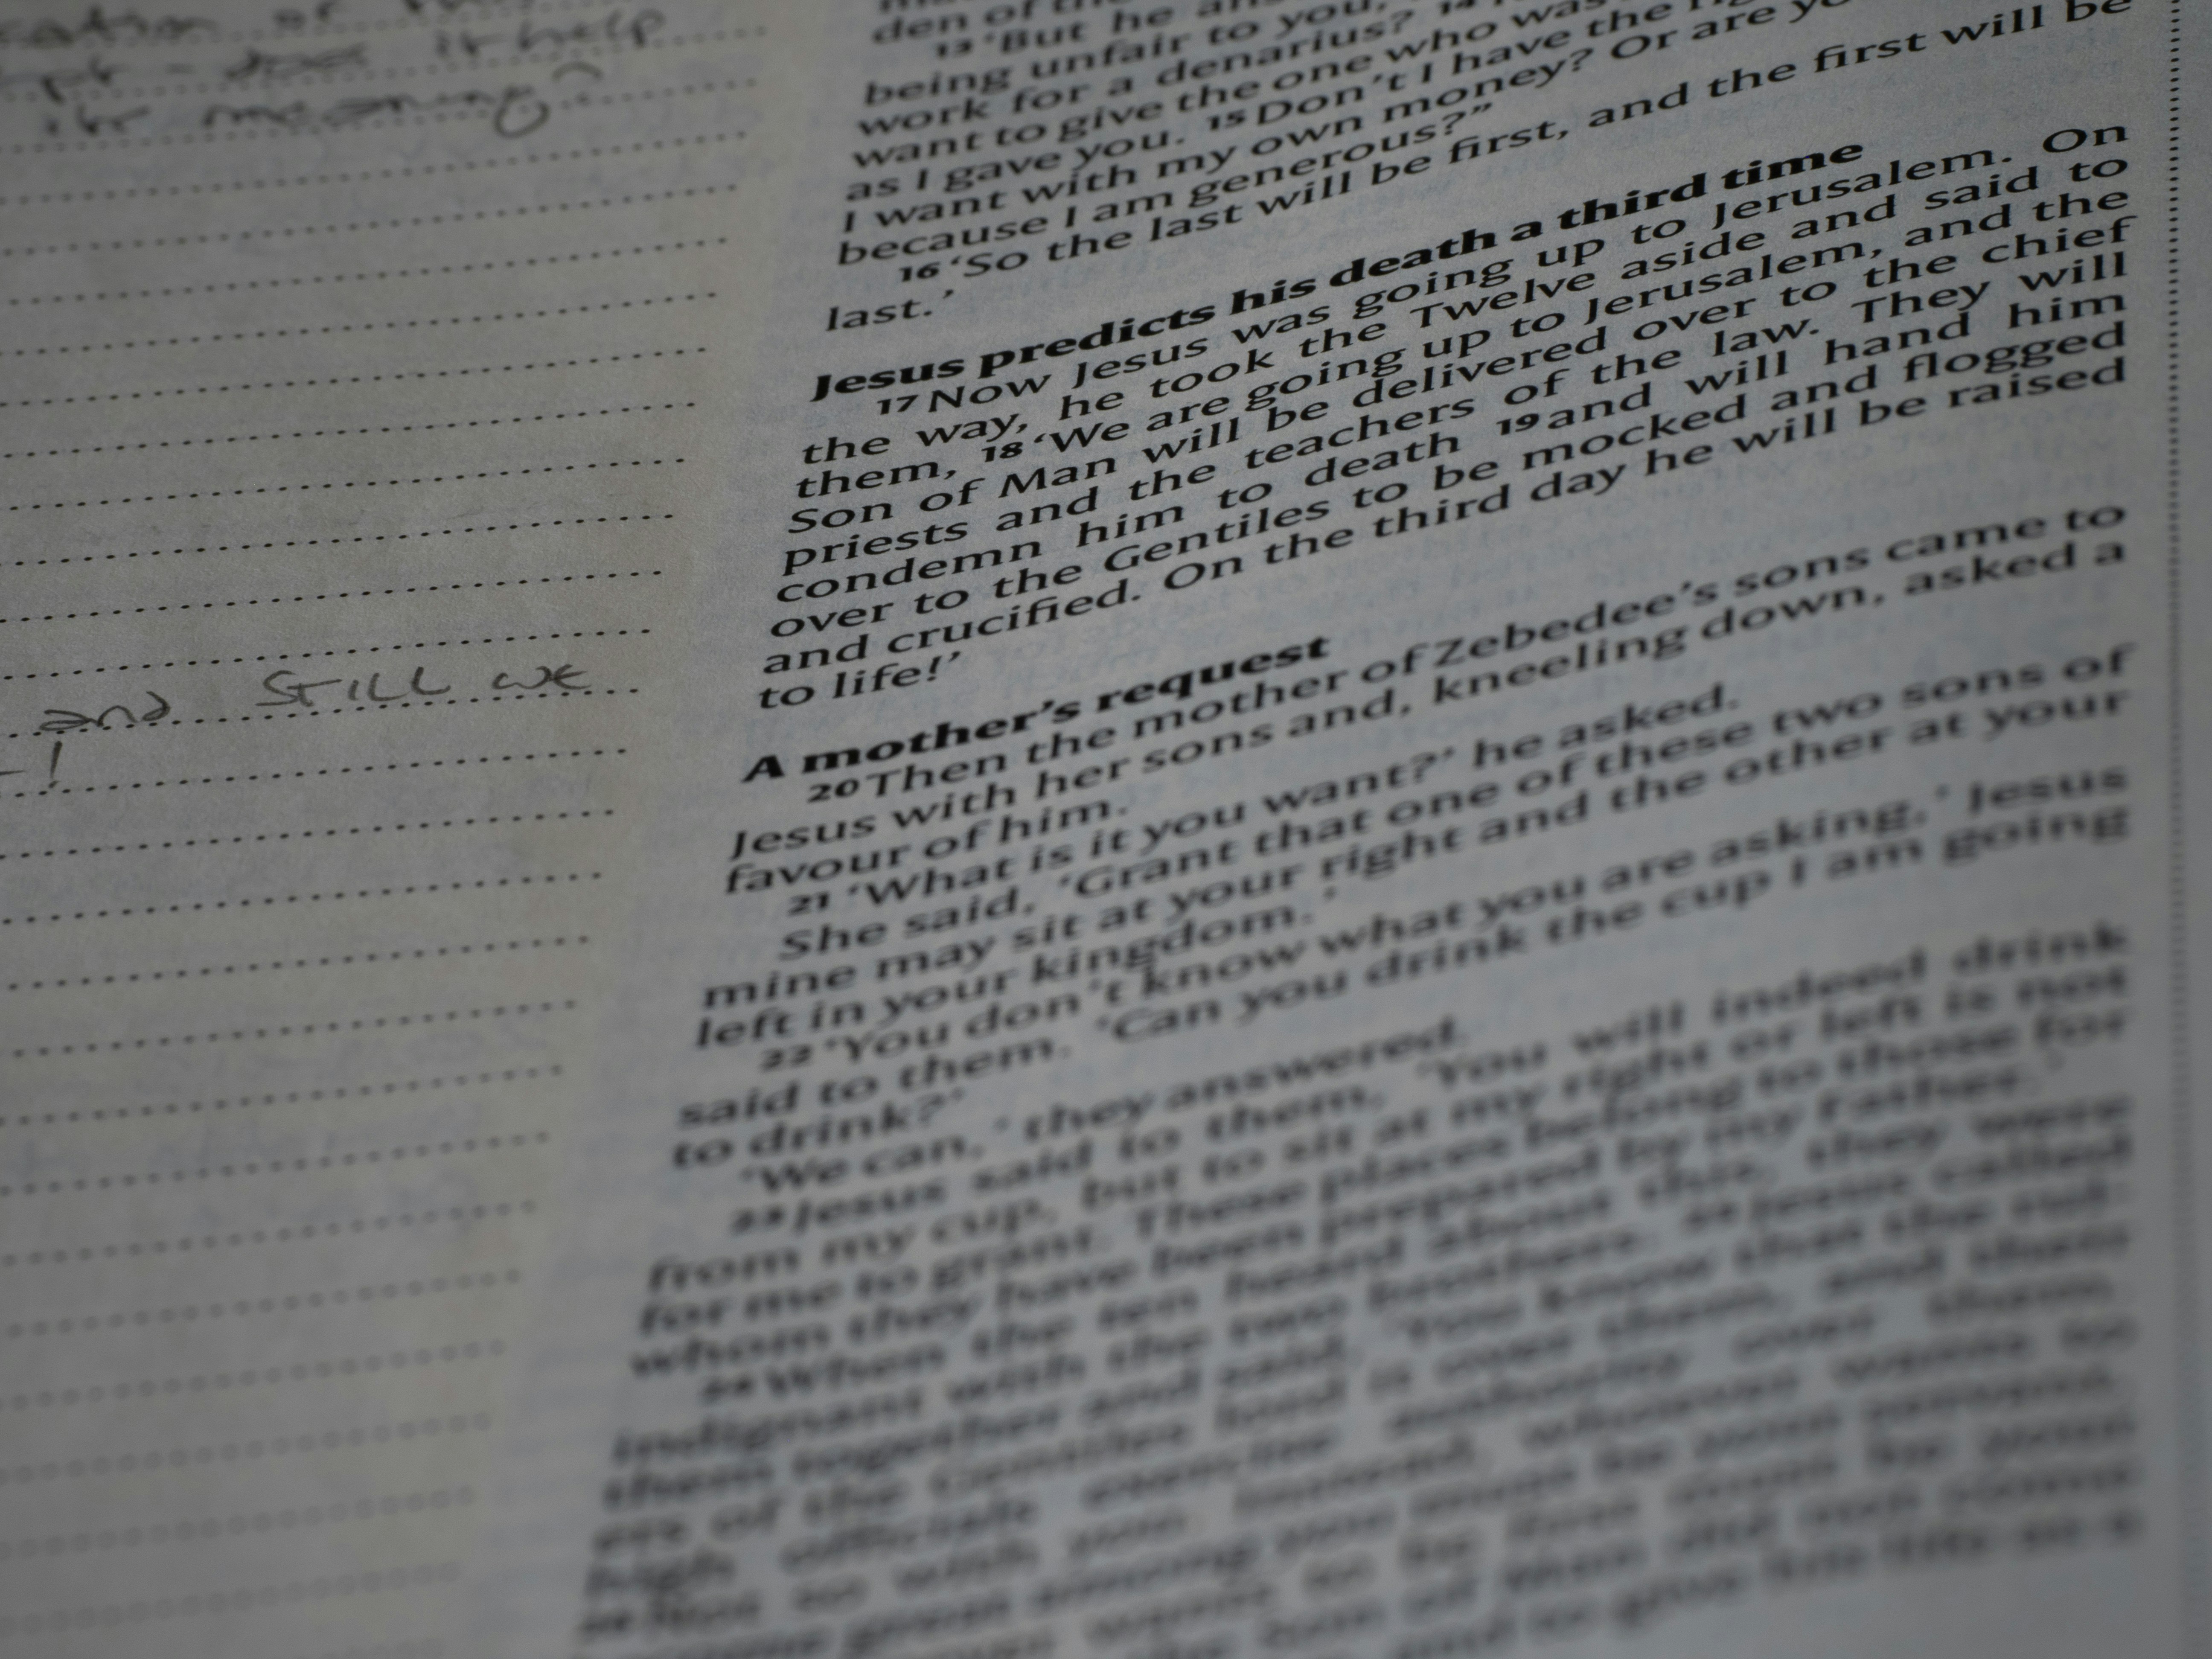 it help
its meaning?
and STILL we
den of the
13 ‘But he
being unfair to you,
work for a denarius? 14
want to give the one who was
as I gave you. 15 Don’t I have the
I want with my own money? Or are
because I am generous?”
16 ‘So the last will be first, and the first will be
last.’
Jesus predicts his death a third time
17 Now Jesus was going up to Jerusalem. On
the way, he took the Twelve aside and said to
them, 18 ‘We are going up to Jerusalem, and the
Son of Man will be delivered over to the chief
priests and the teachers of the law. They will
condemn him to death 19 and will hand him
over to the Gentiles to be mocked and flogged
and crucified. On the third day he will be raised
to life!’
A mother’s request
20 Then the mother of Zebedee’s sons came to
Jesus with her sons and, kneeling down, asked a
favour of him.
21 ‘What is it you want?’ he asked.
She said, ‘Grant that one of these two sons of
mine may sit at your right and the other at your
left in your kingdom.’
22 ‘You don’t know what you are asking,’ Jesus
said to them. ‘Can you drink the cup I am going
to drink?’
‘We can,’ they answered.
23 Jesus said to them, ‘You will indeed drink
from my cup, but to sit at my right or left is not
for me to grant. These places belong to those for
whom they have been prepared by my Father.’
24 When the ten heard about this, they were
indignant with the two brothers. 25 Jesus called
them together and said, ‘You know that the rul-
ers of the Gentiles lord it over them, and their
high officials exercise authority over them.